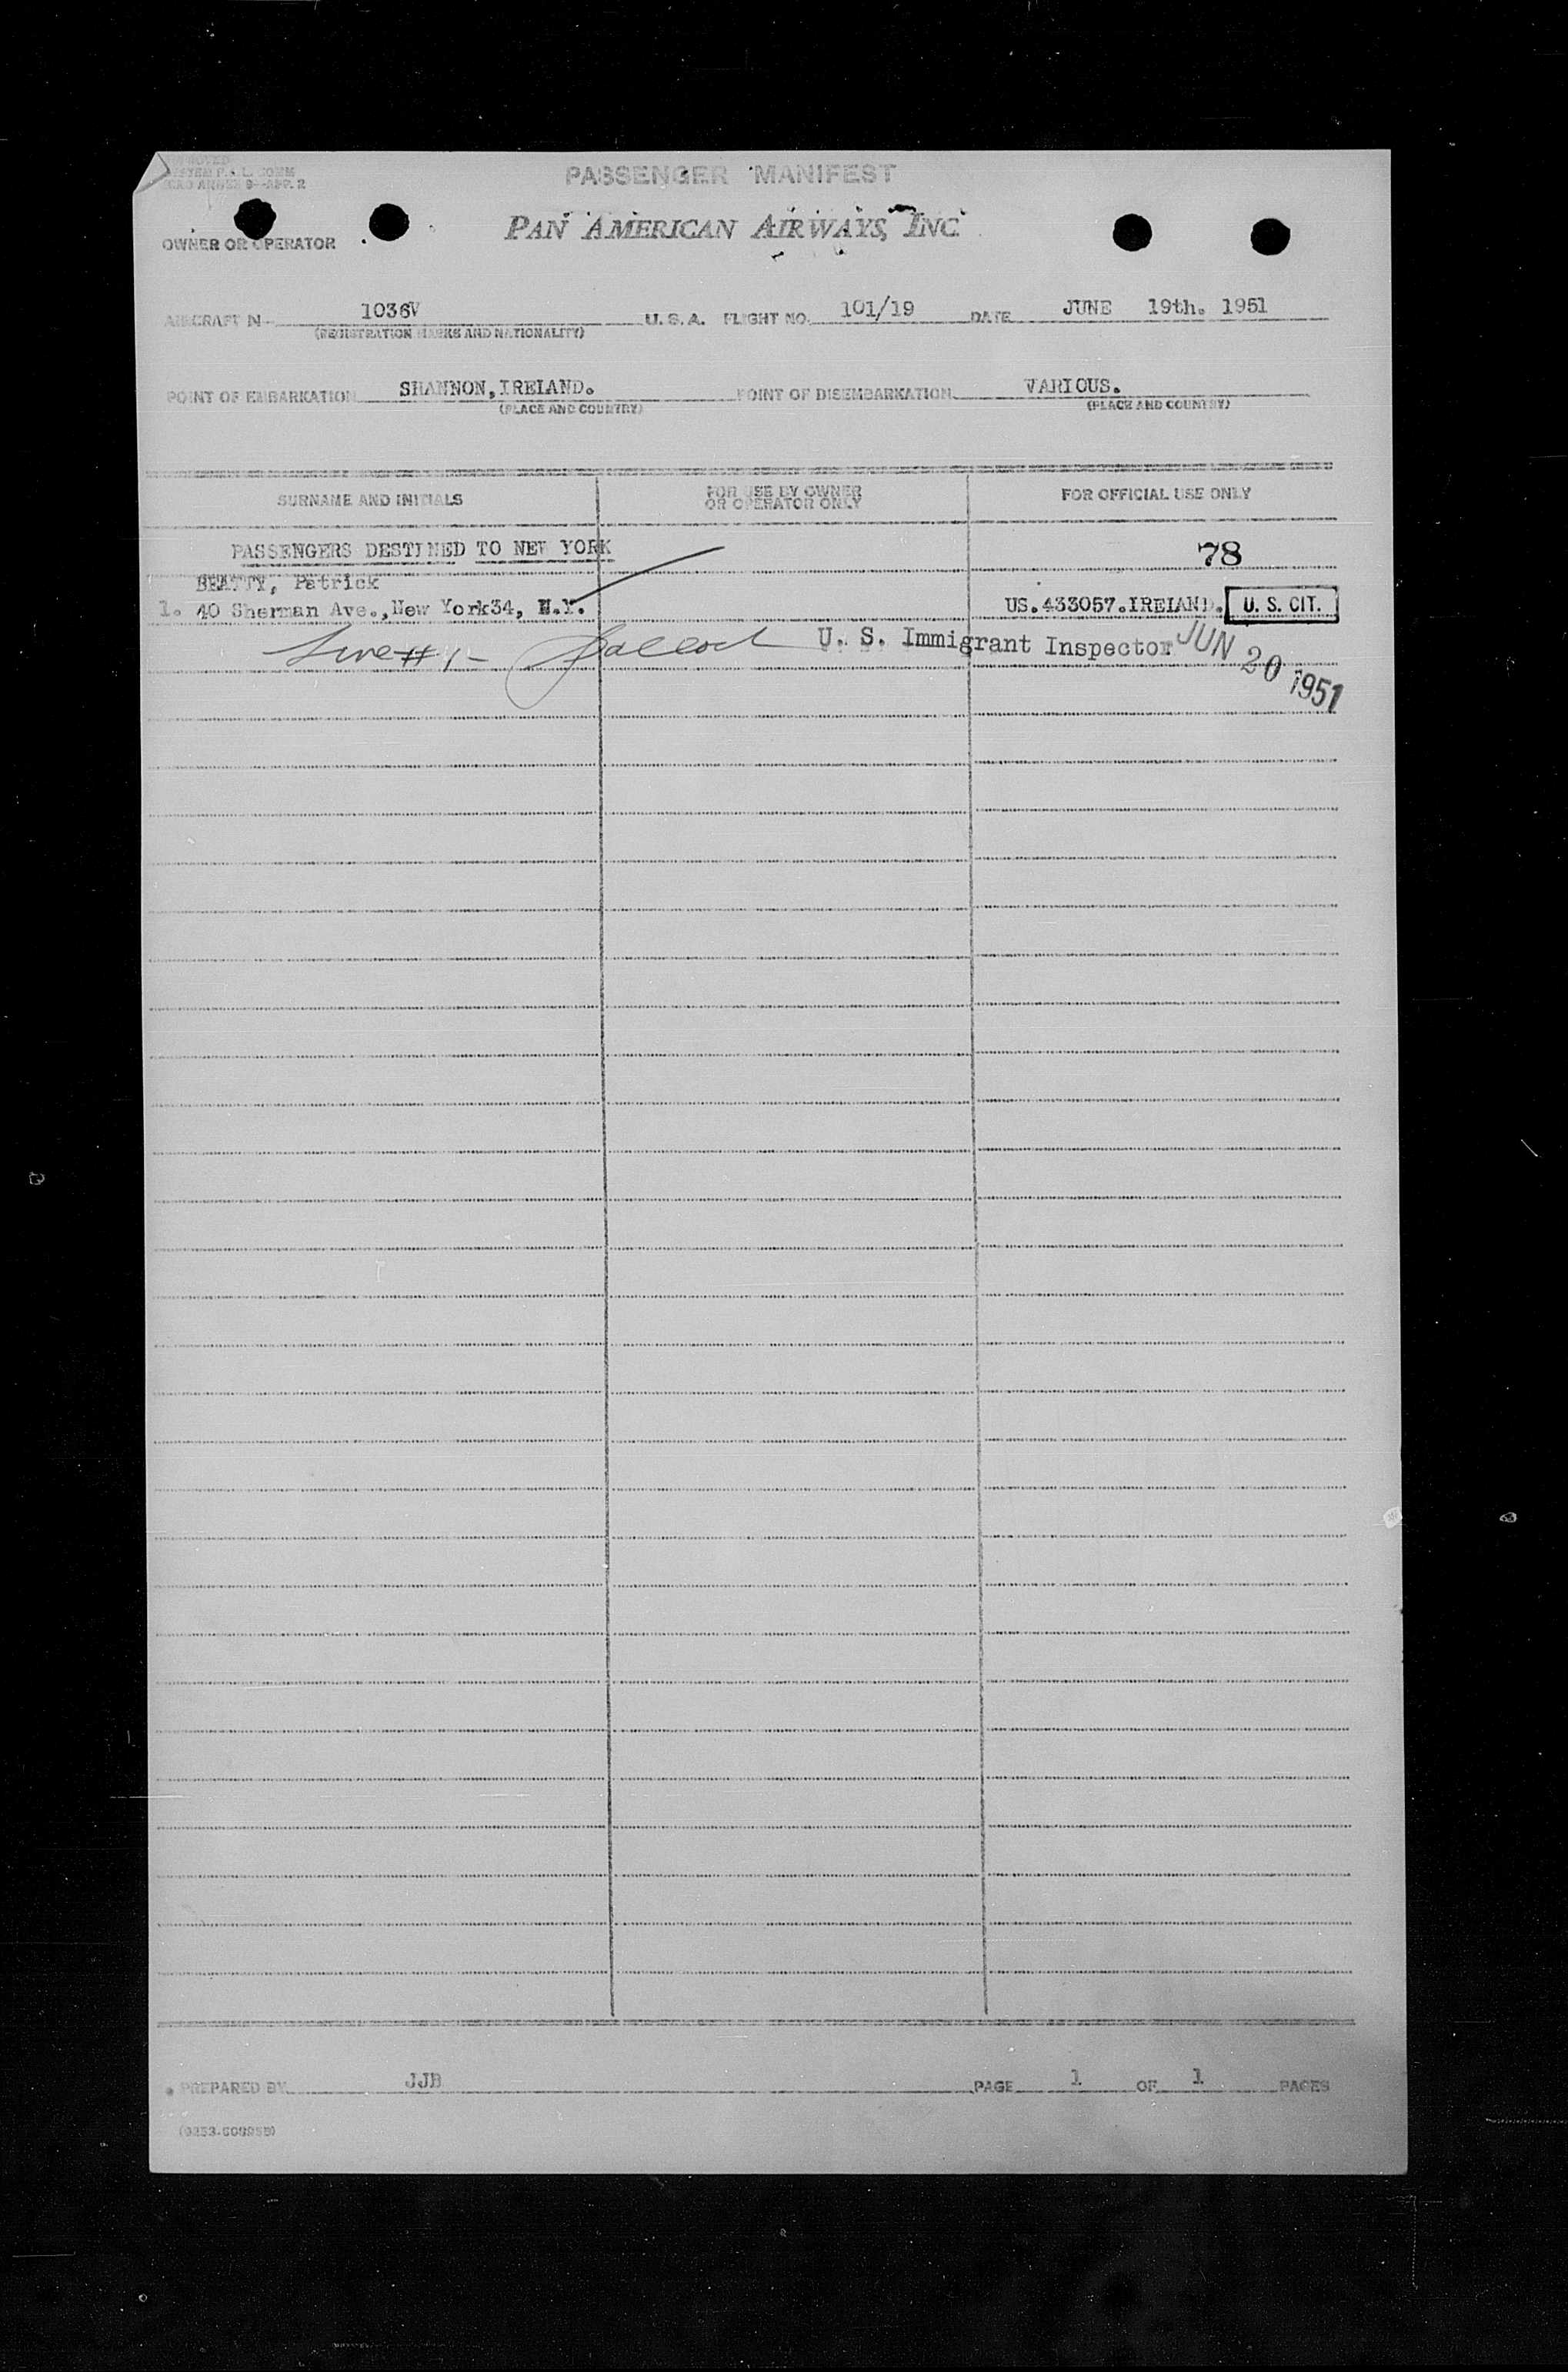 PASSENGER MANIFEST
OWNER OR OPERATOR
PAN AMERICAN AIRWAYS, INC.
AIRCRAFT N 1036V U.S.A. FLIGHT NO. 101/19 DATE JUNE 19th. 1951
(REGISTRATION MARKS AND NATIONALITY)
POINT OF EMBARKATION SHANNON,IRELAND. POINT OF DISEMBARKATION VARIOUS.
(PLACE AND COUNTRY) (PLACE AND COUNTRY)
SURNAME AND INITIALS FOR USE BY OWNER OR OPERATOR ONLY FOR OFFICIAL USE ONLY
PASSENGERS DESTINED TO NEW YORK 78
BEATTY, Patrick
1. 40 Sherman Ave.,New York34, N.Y. US.433057.IRELAND. U. S. CIT.
Line # 1 - U. S. Immigrant Inspector JUN 20 1951
PREPARED BY JJB PAGE 1 OF 1 PAGES